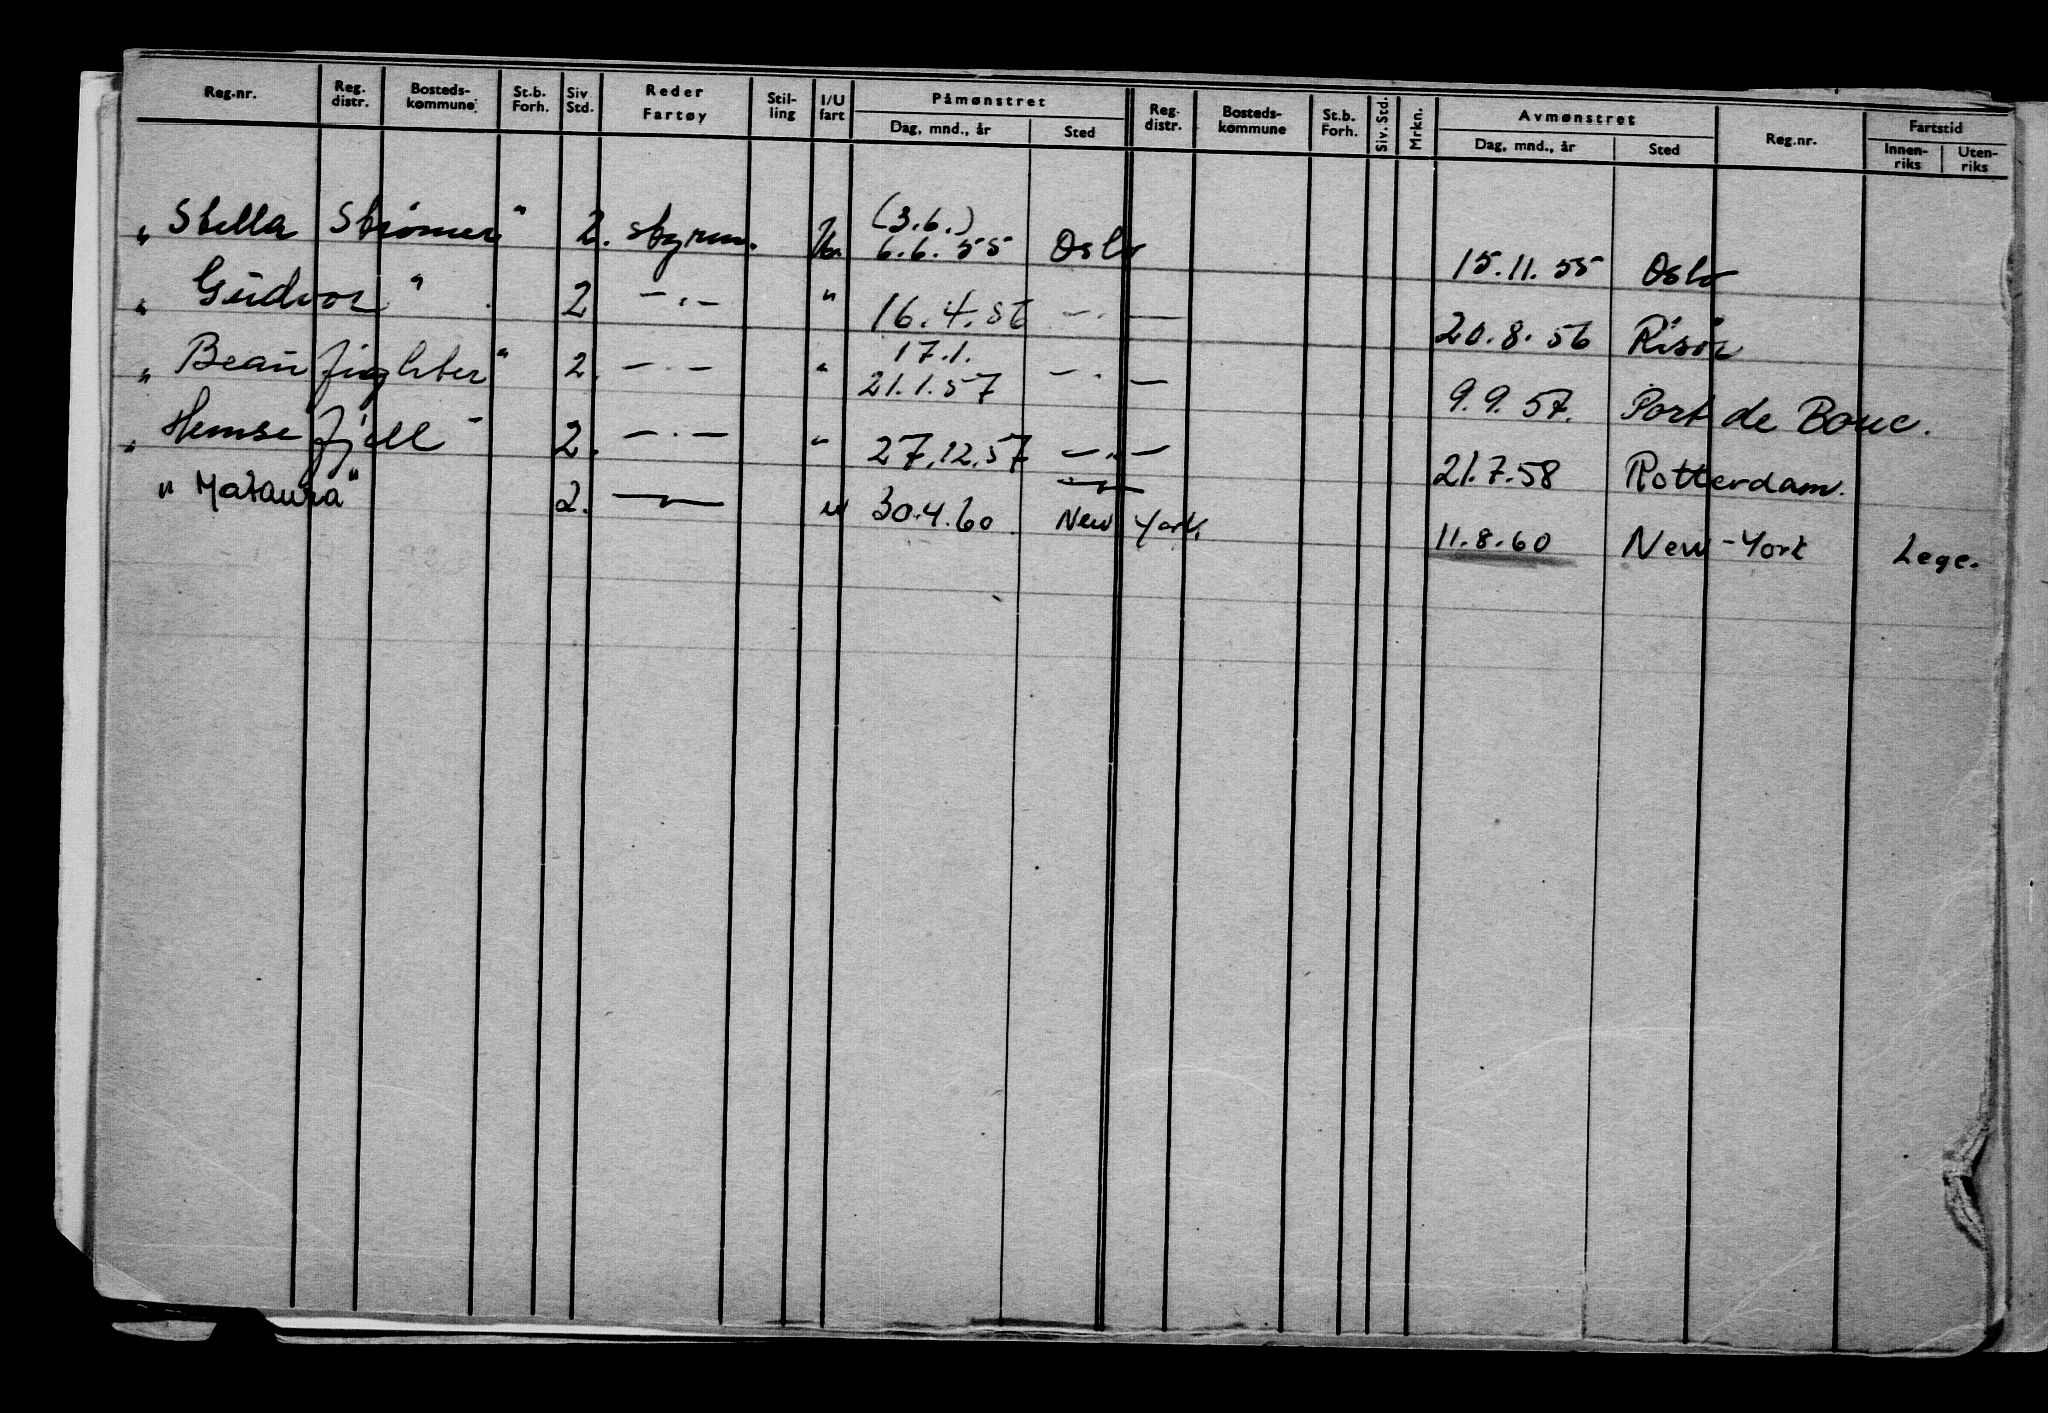 Reg.nr. Reg. distr. Bosteds- kommune St.b. Forh. Siv Std. Reder Fartøy Stil- ling I/U fart Påmønstret Dag, mnd., år Sted Reg. distr. Bosteds- kommune St.b. Forh. Siv. Std. Mrkn. Avmønstret Dag, mnd., år Sted Reg.nr. Fartstid Innen- riks Uten- riks
(3.6.)
„Stella Strømer" 2. styrm. 6.6.55 Oslo 15.11.55 Oslo
„Gudvor" 2 —.— " 16.4.56 —.— 20.8.56 Risør
17.1.
„Beaufighter" 2. —.— " 21.1.57 —.— 9.9.57. Port de Bouc.
„Hemsefjell" 2. —.— " 27.12.57 —„— 21.7.58 Rotterdam.
"Mataura" 2. —"— " 30.4.60 New York. 11.8.60 New-York Lege.